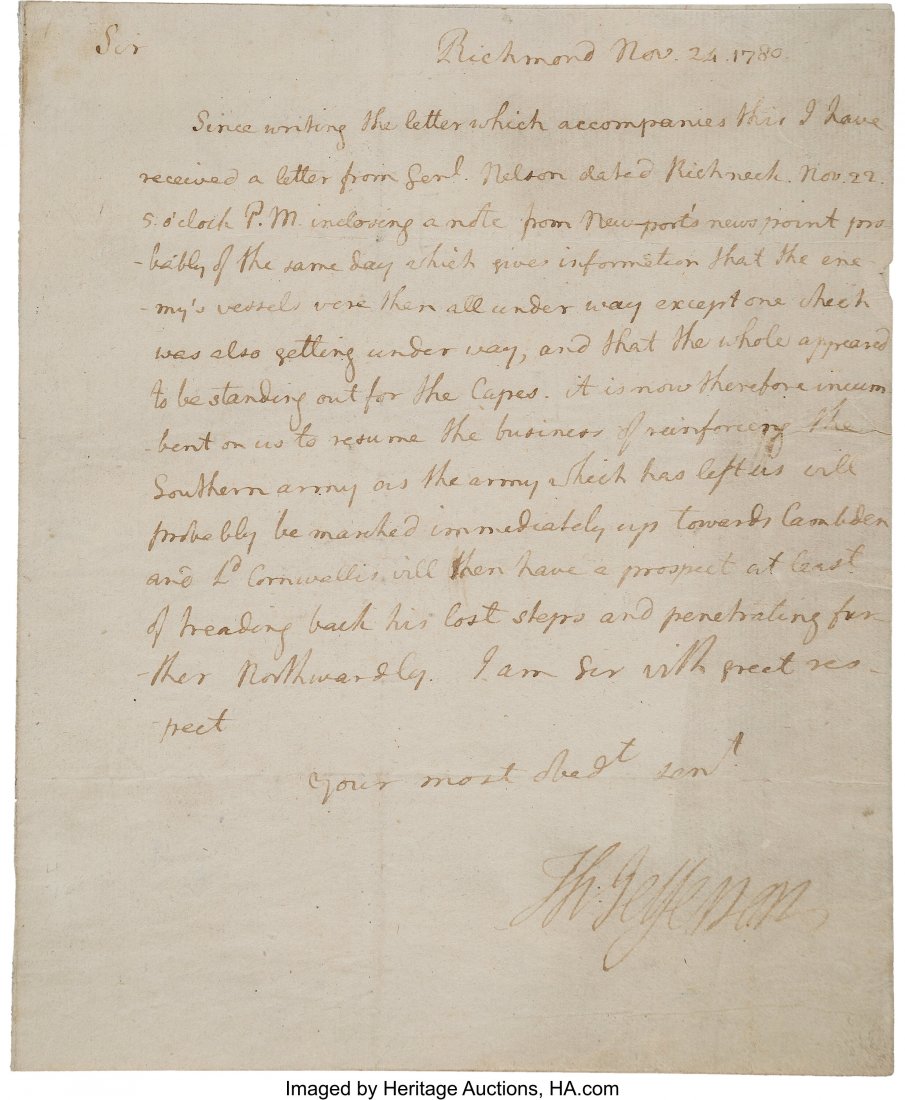 Sir
Richmond Nov. 24. 1780.
Since writing the letter which accompanies this I have
received a letter from Genl. Nelson dated Richneck. Nov. 22.
5. o'clock P.M. inclosing a note from New-port's news point pro-
-bably of the same day which gives information that the ene-
-my's vessels were then all under way except one which
was also getting under way, and that the whole appeared
to be standing out for the Capes. it is now therefore incum
-bent on us to resume the business of reinforcing the
Southern army as the army which has left us will
probably be marched immediately up towards Cambden
and Ld. Cornwallis will then have a prospect at least
of treading back his lost steps and penetrating fur-
-ther Northwardly. I am Sir with great res-
-pect
Your most obedt servt
Th: Jefferson
Imaged by Heritage Auctions, HA.com